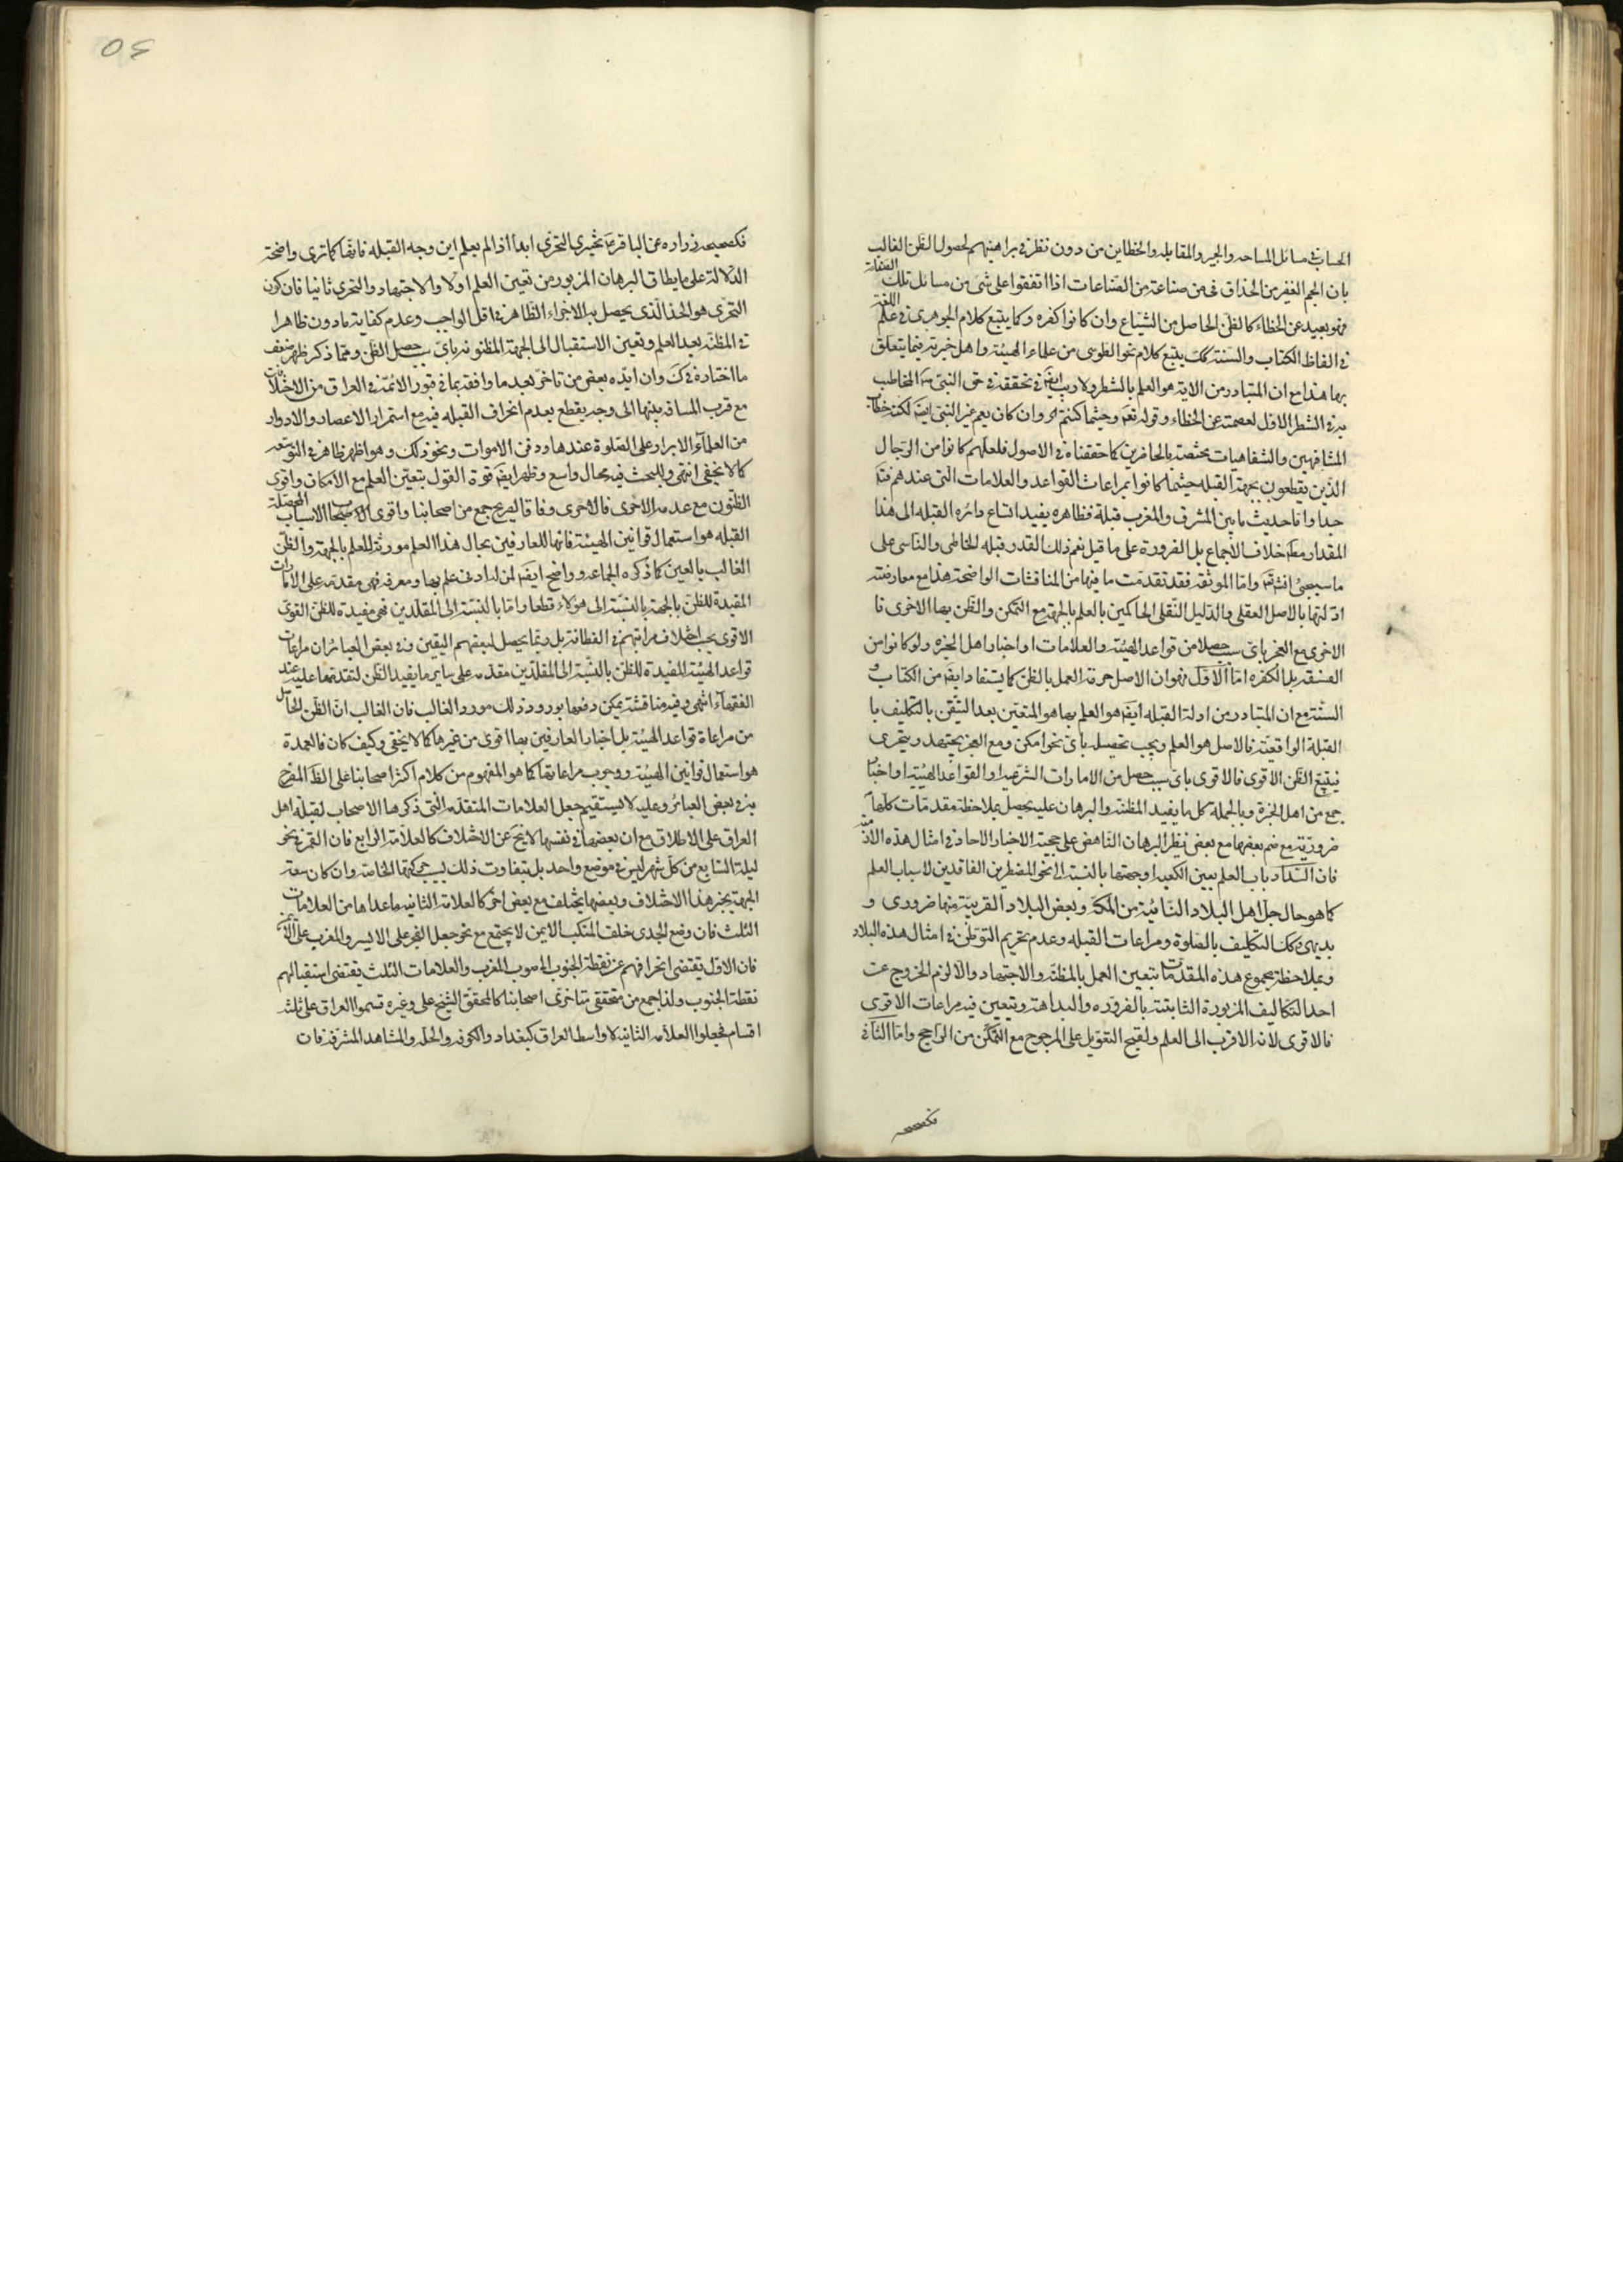 الحساب في مسائل المساحه والجبر والمقابله والخطاين من دون نظر في براهينهم لحصول الظن الغالب
بان الجم الغفير من الحذاق في من صناعة من الصناعات اذا اتفقوا على شئ من مسائل تلك الصناعة
فهو بعيد عن الخطاء كالظن الحاصل من الشياع وان كانوا كفره وكما يتبع كلام الجوهري في علم اللغة
في الفاظ الكتاب والسنة كك يتبع كلام نحو الطوسي من علماء الهيئة واهل خبرته فيما يتعلق
بها هذا مع ان المتبادر من الاية هو العلم بالشطر ولا ريب ايض في تحققه في حق النبي ص المخاطب
به في الشطر الاول لعصمته عن الخطاء وقوله تع وحيثما كنتم اه وان كان يعم غير النبي ايض لكنه خطاب
المشافهين والشفاهيات مختصة بالحاضرين كما حققناه في الاصول فلعلهم كانوا من الرجال
الذين يقطعون بجهة القبله حيثما كانوا بمراعات القواعد والعلامات التي عندهم فتد
جدا واما حديث ما بين المشرق والمغرب قبلة فظاهره يفيد اتساع دائره القبله الى هذا
المقدار مط خلاف الاجماع بل الضرورة على ما قيل نعم ذلك القدر قبله الخاطى والناسى على
ما سيجئ انش تع واما الموثقه فقد تقدمت ما فيها من المناقشات الواضحة هذا مع معارضته
ادلتها بالاصل العقلي والدليل النقلي الحاكمين بالعلم بالجهة مع التمكن والظن بها الاحرى فا
الاحرى مع العجز باى سبب حصلا من قواعد الهيئة والعلامات او اخبار اهل الخبره ولو كانوا من
الفسقه بل الكفره اما الاول فهو ان الاصل حرمة العمل بالظن كما يستفاد ايض من الكتاب و
السنة مع ان المتبادر من ادلة القبله ايض هو العلم بها هو المتعين بعد التيقن بالتكليف با
القبلة الواقعية فالاصل هو العلم ويجب تحصيله باى نحو امكن ومع العجز يجتهد ويتحرى
فيتبع الظن الاقوى فالاقوى باى سبب حصل من الامارات الشرعية او القواعد الهيئية او اخبار
جمع من اهل الخبرة وبالجملة كل ما يفيد المظنه والبرهان عليه يحصل بملاحظة مقدمات كلها
ضرورية مع ضم بعضها مع بعض نظير البرهان الناهض على حجية الاخبار الاحاد في امثال هذه الازمنة
فان انسداد باب العلم بعين الكعبه او جهتها بالنسبة الى نحو المضطرين الفاقدين لاسباب العلم
كما هو حال جل اهل البلاد النائية من المكة وبعض البلاد القريبة منها ضروري و
بديهي وكك التكليف بالصلوة ومراعات القبله وعدم تحريم التوطن في امثال هذه البلاد
وبملاحظة مجموع هذه المقدمات يتعين العمل بالمظنة والاجتهاد والا لزم الخروج عن
احد التكاليف المزبورة الثابتة بالضروره والبداهة ويتعين فيه مراعات الاقوى
فالاقوى لانه الاقرب الى العلم ولقبح التعويل على المرجوح مع التمكن من الراجح واما الثاني
فكصحيحه
٥٤
فكصحيحه زراره عن الباقر ع يجزى التحرى ابدا اذا لم يعلم اين وجه القبله فانها كما ترى واضحة
الدلالة على ما يطابق البرهان المزبور من تعين العلم اولا والاجتهاد والتحرى ثانيا فان كون
التحرى هو الحد الذى يحصل به الاجزاء الظاهر في اقل الواجب وعدم كفاية ما دون ظاهرا
في المظنه بعد العلم وتعين الاستقبال الى الجهة المظنونه باى سبب حصل الظن ومما ذكر ظهر ضعف
ما اختاره في ك وان ايده بعض من تاخر بعد ما وافقه بما في قبور الائمة في العراق من الاختلاف
مع قرب المسافه بينها الى وجه يقطع بعدم انحراف القبله فيه مع استمرار الاعصار والادوار
من العلماء الابرار على الصلوة عندها ودفن الاموات ونحو ذلك وهو اظهر ظاهر في التوسعه
كما لا يخفى انتهى وللبحث فيه مجال واسع وظهر ايض قوة القول بتعين العلم مع الامكان واقوى
الظنون مع عدمه الاحرى فالاحرى وفاقا لصريح جمع من اصحابنا واقوى الاسباب المحصلة
القبله هو استعمال قوانين الهيئة فانها للعارفين بحال هذا العلم مورثة للعلم بالجهة والظن
الغالب بالعين كما ذكره الجماعه وواضح ايض لمن له ادنى علم بها ومعرفه فهى مقدمه على الامارات
المفيدة للظن بالجهة بالنسبة الى هؤلاء قطعا واما بالنسبة الى المقلدين فهى مفيدة للظن القوى
الاقوى بحسب اختلاف مراتبهم في الفطانة بل ربما يحصل لبعضهم اليقين وفي بعض العبائر ان مراعات
قواعد الهيئة المفيدة للظن بالنسبة الى المقلدين مقدمه على ساير ما يفيد الظن لتقدمها عليه عند
الفقهاء انتهى وفيه مناقشة يمكن دفعها بورود ذلك مورد الغالب فان الغالب ان الظن الحاصل
من مراعاة قواعد الهيئة بل اخبار العارفين بها اقوى من غيرها كما لا يخفى وكيف كان فالعمدة
هو استعمال قوانين الهيئة ووجوب مراعاتها كما هو المفهوم من كلام اكثر اصحابنا على الظ المصرح
به في بعض العبائر وعليه لا يستقيم جعل العلامات المتقدمه التى ذكرها الاصحاب لقبلة اهل
العراق على الاطلاق مع ان بعضها في نفسها لا يخ عن الاختلاف كالعلامة الرابع فان القمر في نحو
ليلة السابع من كل شهر ليس في موضع واحد بل يتفاوت ذلك بسبب حركتها الخاصة وان كان سعة
الجهة يجبر هذا الاختلاف وبعضها يختلف مع بعض اخر كالعلامة الثانيه ما عداها من العلامات
الثلث فان وضع الجدى خلف المنكب الايمن لا يجتمع مع نحو جعل الفجر على الايسر والمغرب على الايمن
فان الاول يقتضى انحرافهم عن نقطة الجنوب الى صوب المغرب والعلامات الثلث يقتضى استقبالهم
نقطة الجنوب ولذا جمع من محققي متاخرى اصحابنا كالمحقق الشيخ على وغيره قسموا العراق على ثلثه
اقسام فجعلوا العلامه الثانيه لاواسط العراق كبغداد والكوفه والحله والمشاهد المشرفة فان